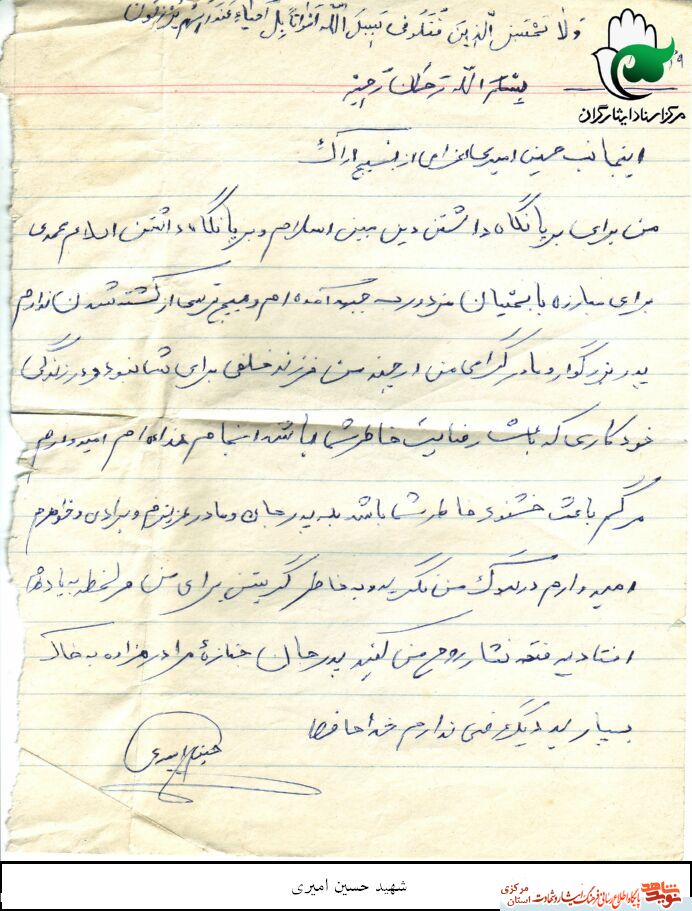 ولا تحسبن الذین قتلو فی سبیل الله امواتا بل احیاء عند ربهم یرزقون
۲۹
بسم الله رحمان رحیم
مرکز اسناد ایثارگران
اینجانب حسین امیری اعزامی از بسیج اراک
من برای برپا نگاه داشتن دین مبین اسلام و برپا نگاه داشتن اسلام محمدی
برای مبارزه با بعثیان مزدور به جبهه آمده ام و هیچ ترسی از کشته شدن ندارم
پدر بزرگوار و مادر گرامی من ار چه من فرزند خلفی برای شما نبودم و در زندگی
خود کاری که باعث رضایت خاطر شما باشد انجام نداده ام امیدوارم
مرگم باعث خشنودی خاطر شما باشد بله پدر جان و مادر عزیزم و برادر و خواهرم
امیدوارم در سوگ من نگریید و به خاطر گریستن برای من هر لحظه به یادم
افتادید فتحه نثار روح من کنید پدر جان جنازۀ مرا در مزاده به خاک
بسپارید دیگر عرضی ندارم خدا حافظ
حسین امیری
شهید حسین امیری
نوید شاهد
پایگاه اطلاع رسانی فرهنگ ایثار و شهادت استان مرکزی